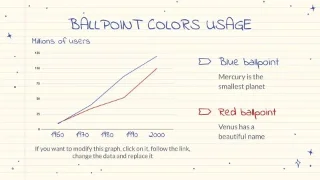 BALLPOINT COLORS USAGE
Millions of users
140
120
100
80
60
40
20
0
1960
1970
1980
1990
2000
Blue ballpoint
Mercury is the
smallest planet
Red ballpoint
Venus has a
beautiful name
If you want to modify this graph, click on it, follow the link,
change the data and replace it